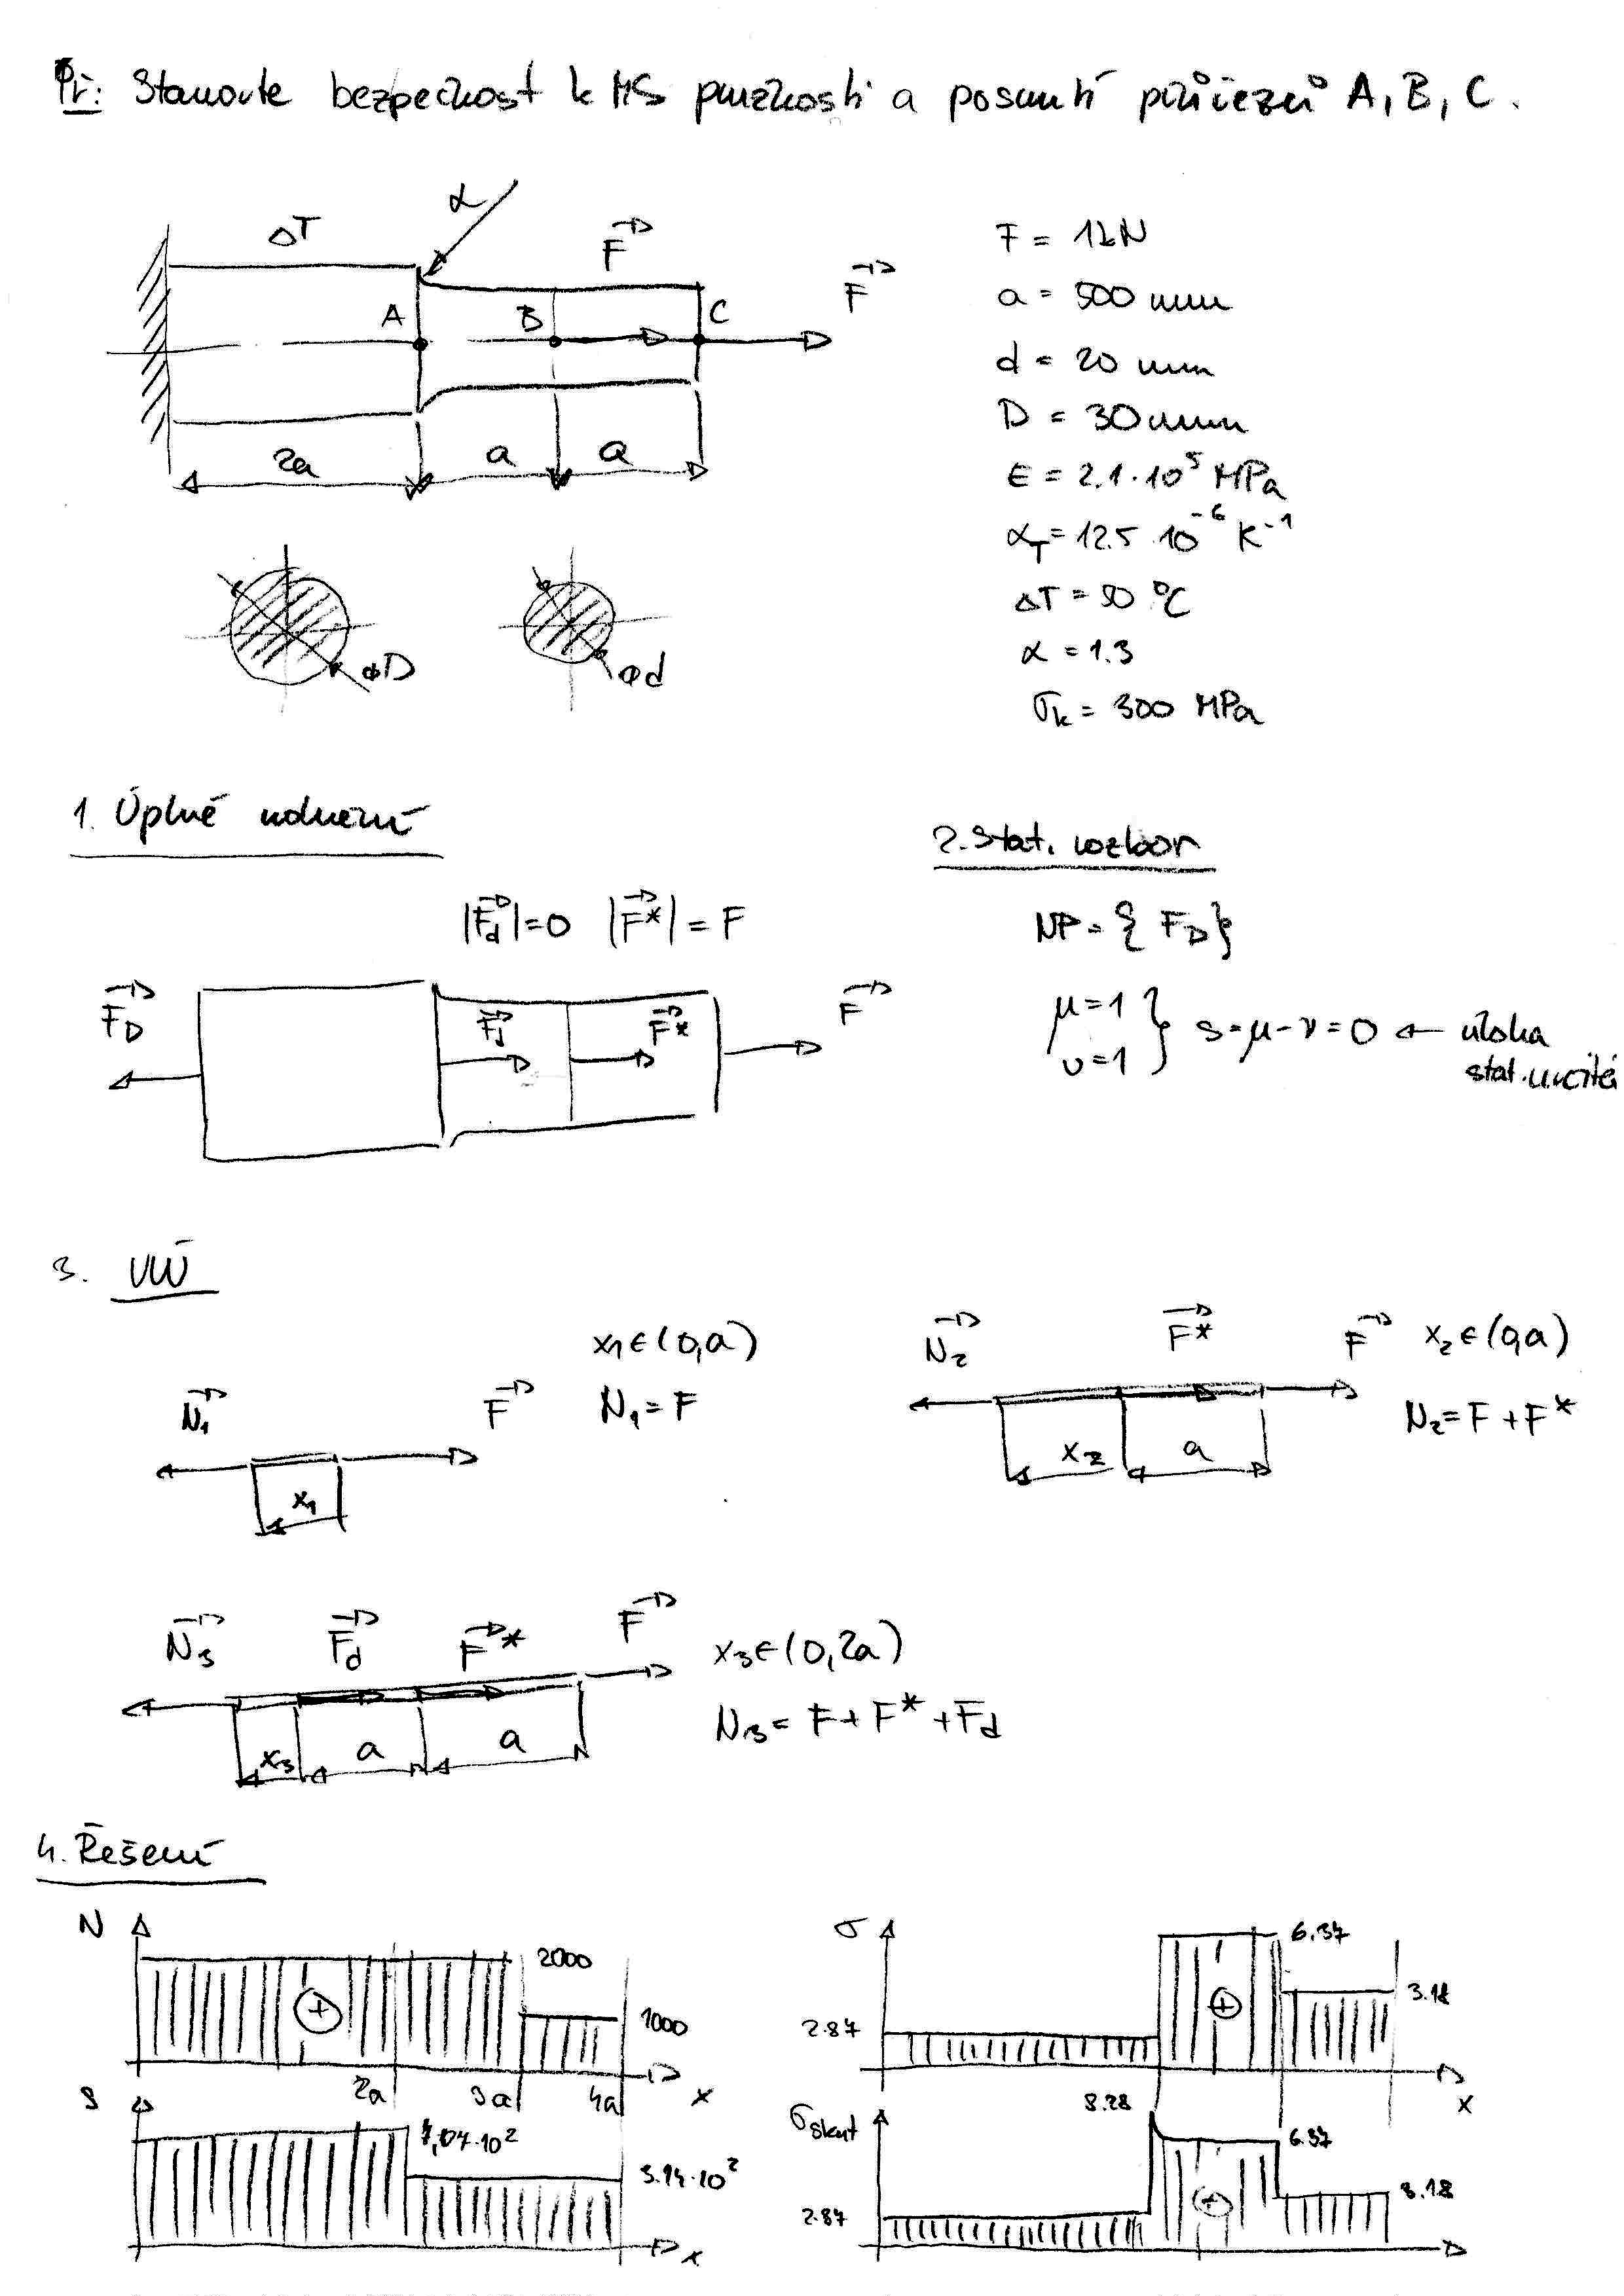 Př: Stanovte bezpečnost k MS pružnosti a posunutí průřezů A, B, C.
ΔT
α
F
F
A
B
C
2a
a
a
φD
φd
F = 1kN
a = 500 mm
d = 20 mm
D = 30 mm
E = 2.1·10⁵ MPa
α_T = 12.5 10⁻⁶ K⁻¹
ΔT = 50 °C
α = 1.3
σ_k = 300 MPa
1. Úplné uvolnění
|F_d| = 0 |F*| = F
F_D
F_d
F*
F
2. Stat. rozbor
NP = { F_D }
μ = 1
ν = 1
} s = μ - ν = 0 ← úloha
stat. určitá
3. VVÚ
x₁ ∈ (0, a)
N₁
F
N₁ = F
x₁
N₂
F*
F
x₂ ∈ (0, a)
N₂ = F + F*
x₂
a
N₃
F_d
F*
F
x₃ ∈ (0, 2a)
N₃ = F + F* + F_d
x₃
a
a
4. Řešení
N
2000
+
1000
2a
3a
4a
x
S
7,07·10²
3.14·10²
x
σ
6.37
3.18
2.87
+
x
σ_skut
8.28
6.37
3.18
2.87
+